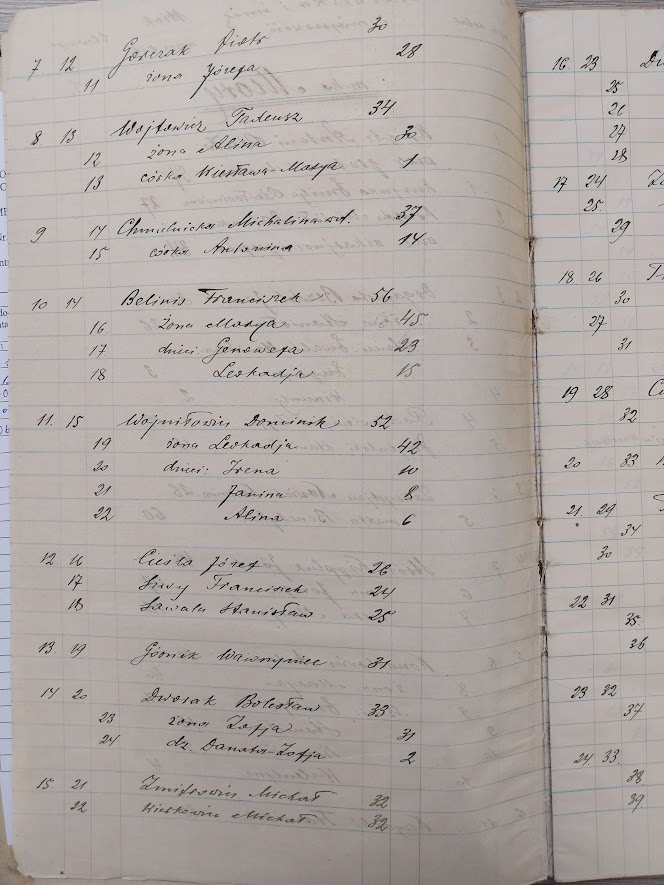 7 12 Gęsczak Piotr 30
11 żona Józefa 28
8 13 Wojtowicz Tadeusz 34
12 żona Alina 30
13 córka Wiesława-Marya 1
9 14 Chmielnicka Michalina wd. 37
15 córka Antonina 14
10 14 Belinis Franciszek 56
16 żona Marya 45
17 dzieci: Genowefa 23
18 Leokadja 15
11. 15 Wojniłowicz Dominik 52
19 żona Leokadja 42
20 dzieci: Irena 10
21 Janina 8
22 Alina 6
12 16 Cieśla Józef 26
17 Siwy Franciszek 24
18 Sawala Stanisław 25
13 19 Górnik Wawrzyniec 31
14 20 Dworak Bolesław 33
23 żona Zofja 31
24 dz. Danuta-Zofja 2
15. 21 Zmitrowicz Michał 32
22 Michał 32
16. 23
25
26
27
28
17 24
25
29
18. 26
30
27
31
19 28
32
20 33
21 29
34
30
22 31
35
36
23 32
37
24. 33.
38
39